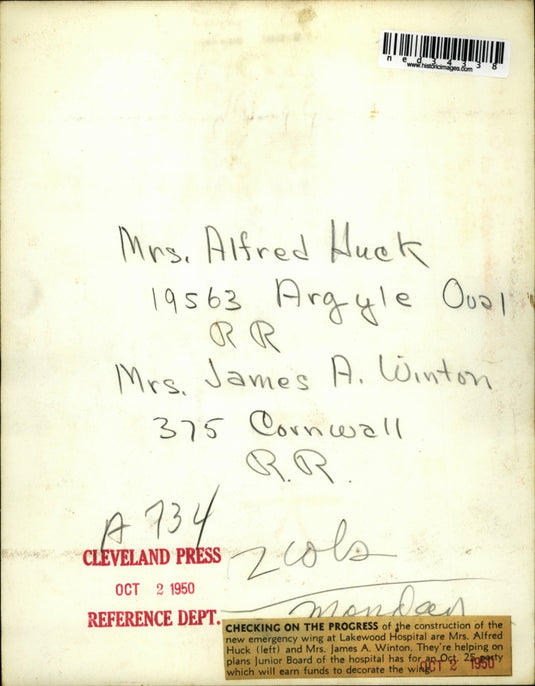 ned34338
www.historicimages.com
Mrs. Alfred Huck
19563 Argyle Oval
RR
Mrs. James A. Winton
375 Cornwall
R.R.
A 734
2 cols
Monday
CLEVELAND PRESS
OCT 2 1950
REFERENCE DEPT.
CHECKING ON THE PROGRESS of the construction of the
new emergency wing at Lakewood Hospital are Mrs. Alfred
Huck (left) and Mrs. James A. Winton. They're helping on
plans Junior Board of the hospital has for an Oct. 25 party
which will earn funds to decorate the wing.
OCT 2 1950